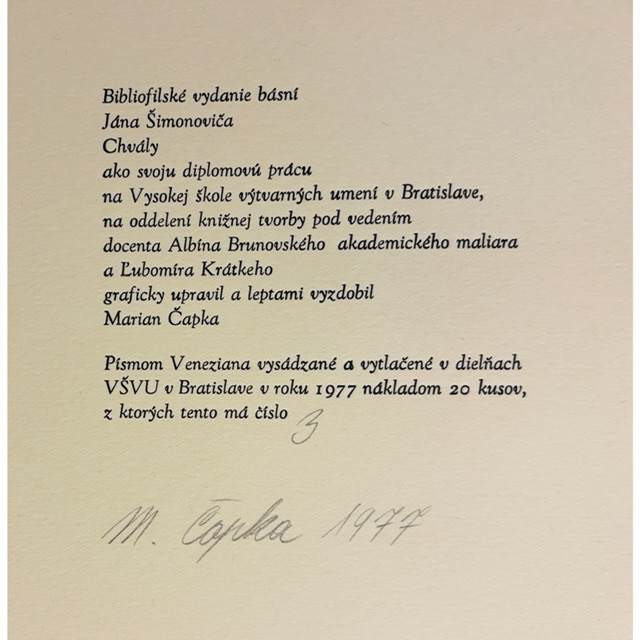 Bibliofilské vydanie básní
Jána Šimonoviča
Chvály
ako svoju diplomovú prácu
na Vysokej škole výtvarných umení v Bratislave,
na oddelení knižnej tvorby pod vedením
docenta Albína Brunovského akademického maliara
a Ľubomíra Krátkeho
graficky upravil a leptami vyzdobil
Marian Čapka
Písmom Veneziana vysádzané a vytlačené v dielňach
VŠVU v Bratislave v roku 1977 nákladom 20 kusov,
z ktorých tento má číslo
3
M. Čapka 1977